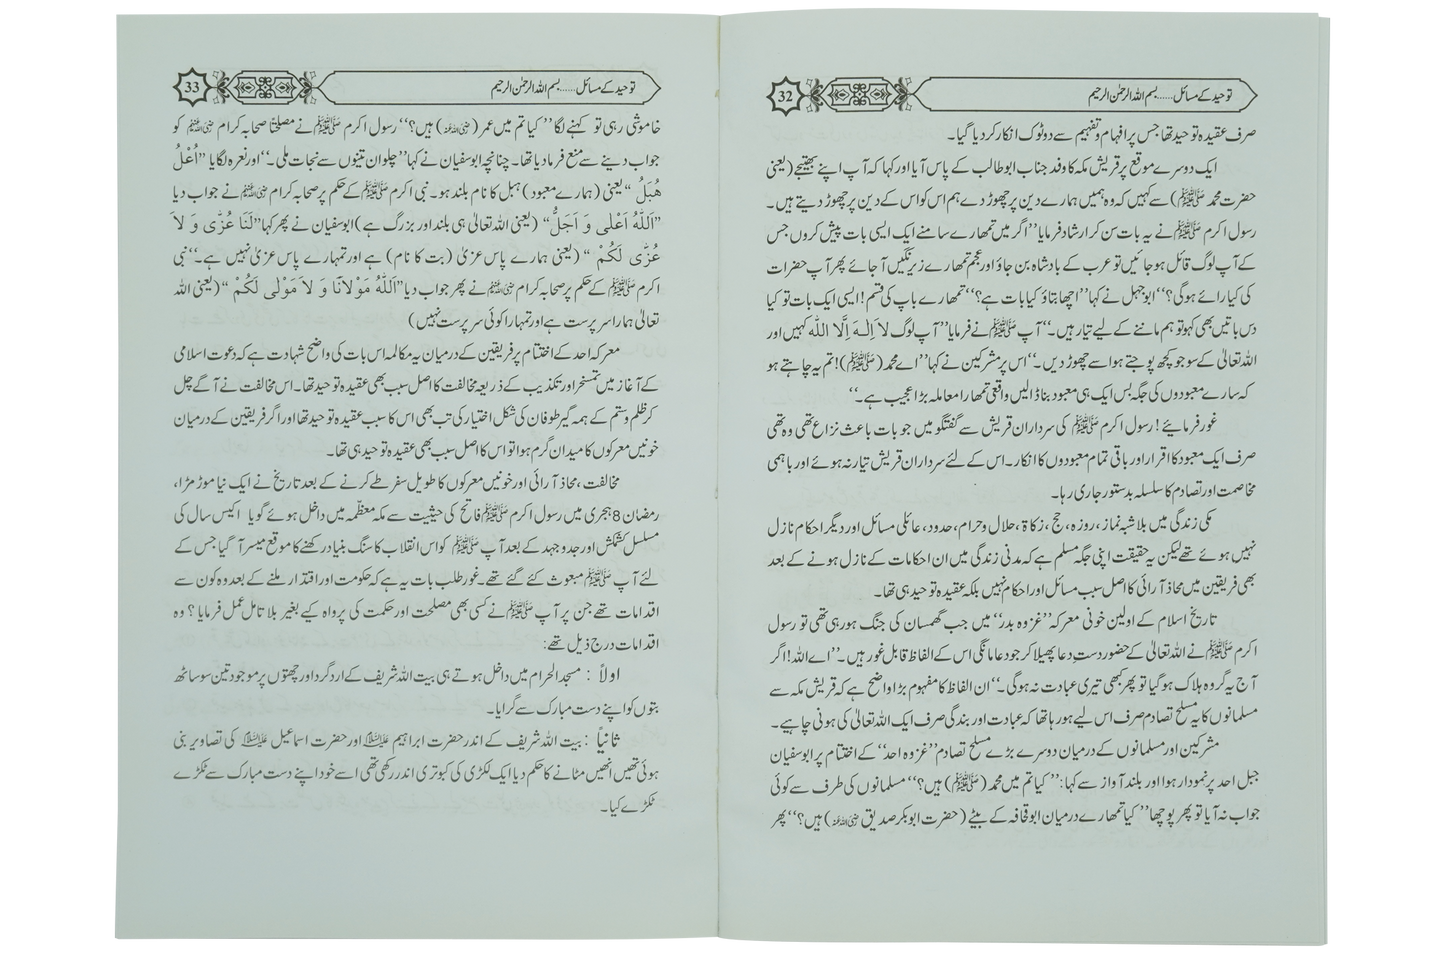 توحید کے مسائل......بسم اللہ الرحمٰن الرحیم
32
صرف عقیدہ توحید تھا جس پر افہام و تفہیم سے دو ٹوک انکار کر دیا گیا۔
ایک دوسرے موقع پر قریش مکہ کا وفد جناب ابوطالب کے پاس آیا اور کہا کہ آپ اپنے بھتیجے (یعنی
حضرت محمد ﷺ) سے کہیں کہ وہ ہمیں ہمارے دین پر چھوڑ دے ہم اس کو اس کے دین پر چھوڑ دیتے ہیں۔
رسول اکرم ﷺ نے یہ بات سن کر ارشاد فرمایا ’’اگر میں تمھارے سامنے ایک ایسی بات پیش کروں جس
کے آپ لوگ قائل ہو جائیں تو عرب کے بادشاہ بن جاؤ اور عجم تمھارے زیر نگیں آ جائے پھر آپ حضرات
کی کیا رائے ہوگی؟‘‘ ابوجہل نے کہا ’’اچھا بتاؤ کیا بات ہے؟‘‘ تمھارے باپ کی قسم! ایسی ایک بات تو کیا
دس باتیں بھی کہو تو ہم ماننے کے لیے تیار ہیں۔‘‘ آپ ﷺ نے فرمایا ’’آپ لوگ لَا اِلٰہَ اِلَّا اللّٰہ کہیں اور
اللہ تعالیٰ کے سوا جو کچھ پوجتے ہو اسے چھوڑ دیں۔‘‘ اس پر مشرکین نے کہا ’’اے محمد (ﷺ)! تم یہ چاہتے ہو
کہ سارے معبودوں کی جگہ بس ایک ہی معبود بنا ڈالیں واقعی تمھارا معاملہ بڑا عجیب ہے۔‘‘
غور فرمائیے! رسول اکرم ﷺ کی سرداران قریش سے گفتگو میں جو بات باعث نزاع تھی وہ تھی
صرف ایک معبود کا اقرار اور باقی تمام معبودوں کا انکار۔ اس کے لئے سرداران قریش تیار نہ ہوئے اور باہمی
مخاصمت اور تصادم کا سلسلہ بدستور جاری رہا۔
مکی زندگی میں بلاشبہ نماز، روزہ، حج، زکاۃ، حلال و حرام، حدود، عائلی مسائل اور دیگر احکام نازل
نہیں ہوئے تھے لیکن یہ حقیقت اپنی جگہ مسلم ہے کہ مدنی زندگی میں ان احکامات کے نازل ہونے کے بعد
بھی فریقین میں محاذ آرائی کا اصل سبب مسائل اور احکام نہیں بلکہ عقیدہ توحید ہی تھا۔
تاریخ اسلام کے اولین خونی معرکہ ’’غزوہ بدر‘‘ میں جب گھمسان کی جنگ ہو رہی تھی تو رسول
اکرم ﷺ نے اللہ تعالیٰ کے حضور دستِ دعا پھیلا کر جو دعا مانگی اس کے الفاظ قابل غور ہیں۔ ’’اے اللہ! اگر
آج یہ گروہ ہلاک ہو گیا تو پھر کبھی تیری عبادت نہ ہوگی۔‘‘ ان الفاظ کا مفہوم بڑا واضح ہے کہ قریش مکہ سے
مسلمانوں کا یہ مسلح تصادم صرف اس لیے ہو رہا تھا کہ عبادت اور بندگی صرف ایک اللہ تعالیٰ کی ہونی چاہیے۔
مشرکین اور مسلمانوں کے درمیان دوسرے بڑے مسلح تصادم ’’غزوہ احد‘‘ کے اختتام پر ابوسفیان
جبل احد پر نمودار ہوا اور بلند آواز سے کہا: ’’کیا تم میں محمد (ﷺ) ہیں؟‘‘ مسلمانوں کی طرف سے کوئی
جواب نہ آیا تو پھر پوچھا ’’کیا تمھارے درمیان ابوقحافہ کے بیٹے (حضرت ابوبکر صدیق رضی اللہ عنہ) ہیں؟‘‘ پھر
توحید کے مسائل......بسم اللہ الرحمٰن الرحیم
33
خاموشی رہی تو کہنے لگا ’’کیا تم میں عمر (رضی اللہ عنہ) ہیں؟‘‘ رسول اکرم ﷺ نے مصلحتاً صحابہ کرام رضی اللہ عنہم کو
جواب دینے سے منع فرما دیا تھا۔ چنانچہ ابوسفیان نے کہا ’’چلو ان تینوں سے نجات ملی۔‘‘ اور نعرہ لگایا ’’اُعْلُ
ھُبَلُ‘‘ یعنی (ہمارے معبود) ہبل کا نام بلند ہو۔ نبی اکرم ﷺ کے حکم پر صحابہ کرام رضی اللہ عنہم نے جواب دیا
’’اَللّٰہُ اَعْلٰی وَ اَجَلُّ‘‘ (یعنی اللہ تعالیٰ ہی بلند اور بزرگ ہے) ابوسفیان نے پھر کہا ’’لَنَا عُزّٰی وَ لَا
عُزّٰی لَکُمْ‘‘ (یعنی ہمارے پاس عزیٰ (بت کا نام) ہے اور تمہارے پاس عزیٰ نہیں ہے۔‘‘ نبی
اکرم ﷺ کے حکم پر صحابہ کرام رضی اللہ عنہم نے پھر جواب دیا ’’اَللّٰہُ مَوْلَانَا وَ لَا مَوْلٰی لَکُمْ‘‘ (یعنی اللہ
تعالیٰ ہمارا سرپرست ہے اور تمہارا کوئی سرپرست نہیں)
معرکہ احد کے اختتام پر فریقین کے درمیان یہ مکالمہ اس بات کی واضح شہادت ہے کہ دعوت اسلامی
کے آغاز میں تمسخر اور تکذیب کے ذریعہ مخالفت کا اصل سبب بھی عقیدہ توحید تھا۔ اس مخالفت نے آگے چل
کر ظلم و ستم کے ہمہ گیر طوفان کی شکل اختیار کی تب بھی اس کا سبب عقیدہ توحید تھا اور اگر فریقین کے درمیان
خونیں معرکوں کا میدان گرم ہوا تو اس کا اصل سبب بھی عقیدہ توحید ہی تھا۔
مخالفت، محاذ آرائی اور خونیں معرکوں کا طویل سفر طے کرنے کے بعد تاریخ نے ایک نیا موڑ مڑا،
رمضان 8 ہجری میں رسول اکرم ﷺ فاتح کی حیثیت سے مکہ معظّمہ میں داخل ہوئے گویا اکیس سال کی
مسلسل کشمکش اور جدوجہد کے بعد آپ ﷺ کو اس انقلاب کا سنگ بنیاد رکھنے کا موقع میسر آ گیا جس کے
لئے آپ ﷺ مبعوث کئے گئے تھے۔ غور طلب بات یہ ہے کہ حکومت اور اقتدار ملنے کے بعد وہ کون سے
اقدامات تھے جن پر آپ ﷺ نے کسی بھی مصلحت اور حکمت کی پرواہ کیے بغیر بلا تامل عمل فرمایا؟ وہ
اقدامات درج ذیل تھے:
اولاً : مسجد الحرام میں داخل ہوتے ہی بیت اللہ شریف کے ارد گرد اور چھتوں پر موجود تین سو ساٹھ
بتوں کو اپنے دست مبارک سے گرایا۔
ثانیاً : بیت اللہ شریف کے اندر حضرت ابراہیم علیہ السلام اور حضرت اسماعیل علیہ السلام کی تصاویر بنی
ہوئی تھیں انھیں مٹانے کا حکم دیا ایک لکڑی کی کبوتری اندر رکھی تھی اسے خود اپنے دست مبارک سے ٹکڑے
ٹکڑے کیا۔